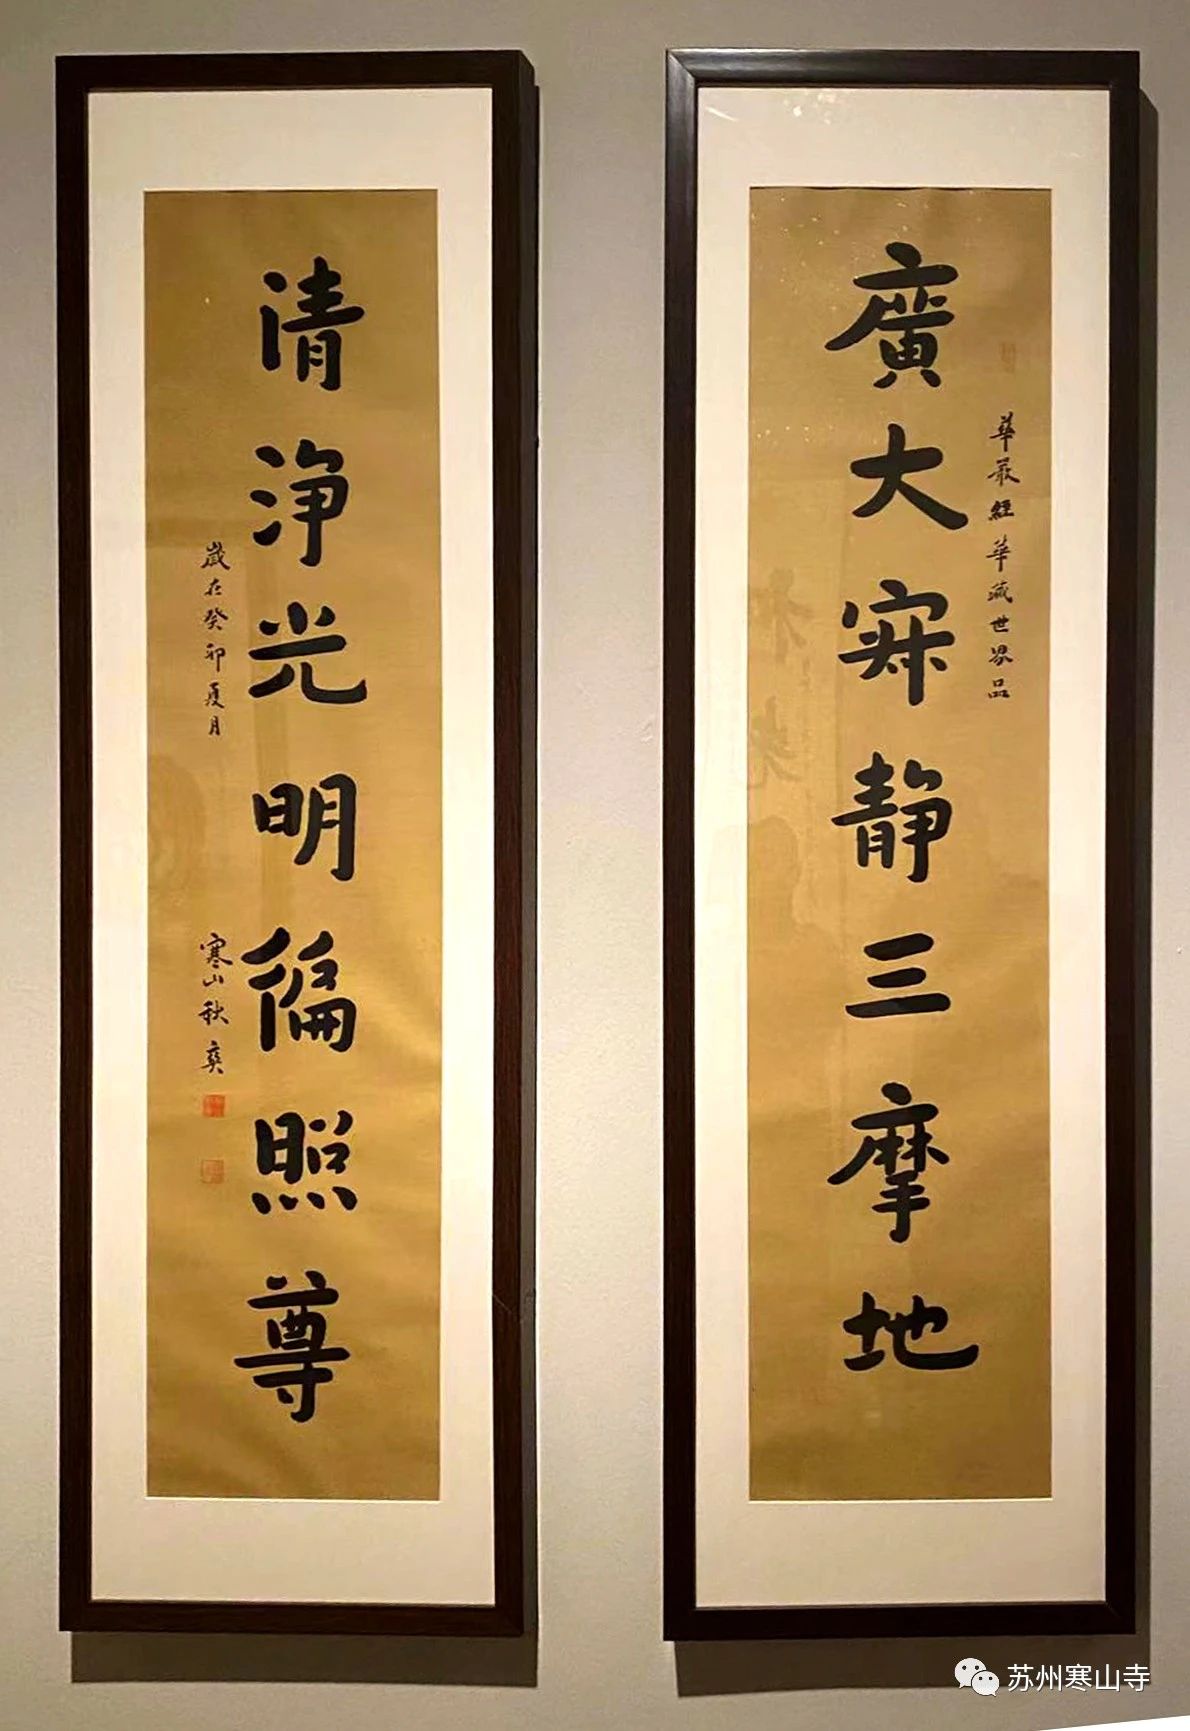 廣大寂靜三摩地
華嚴經華藏世界品
清淨光明徧照尊
歲在癸卯夏月
寒山秋爽
苏州寒山寺